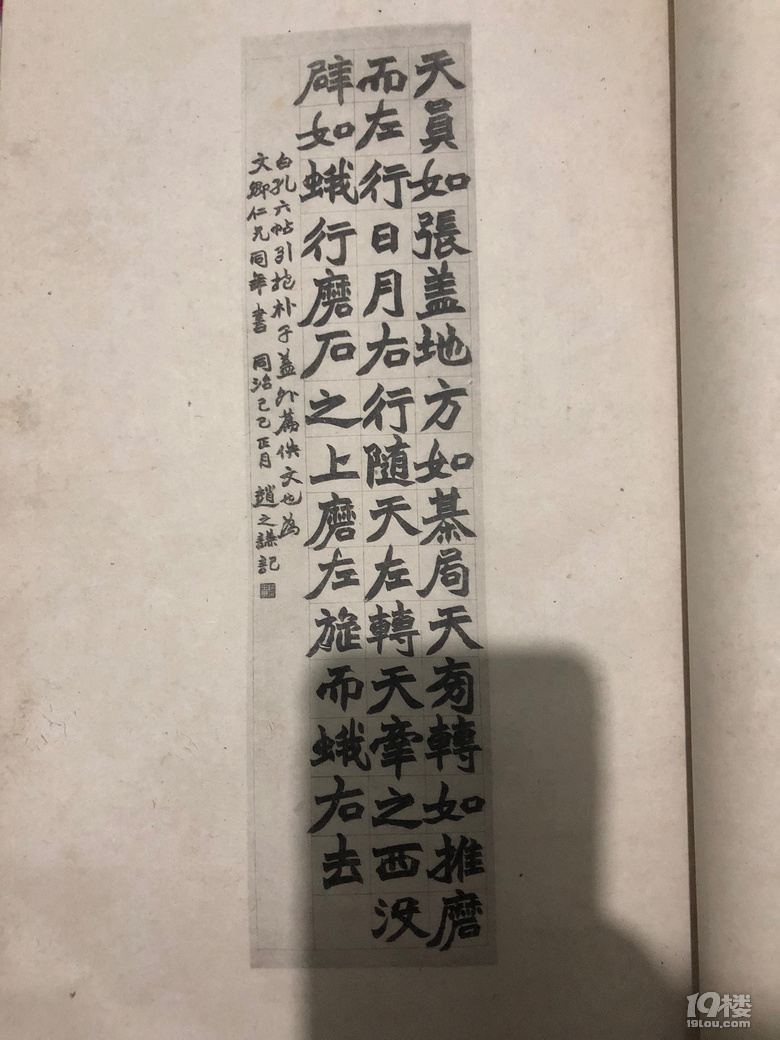 天員如張盖地方如棊局天旁轉如推磨
而左行日月右行隨天左轉天牽之西没
辟如蛾行磨石之上磨左旋而蛾右去
白孔六帖引抱朴子葢外篇佚文也為
文卿仁兄同年書 同治己巳正月 趙之謙記
19楼
19lou.com